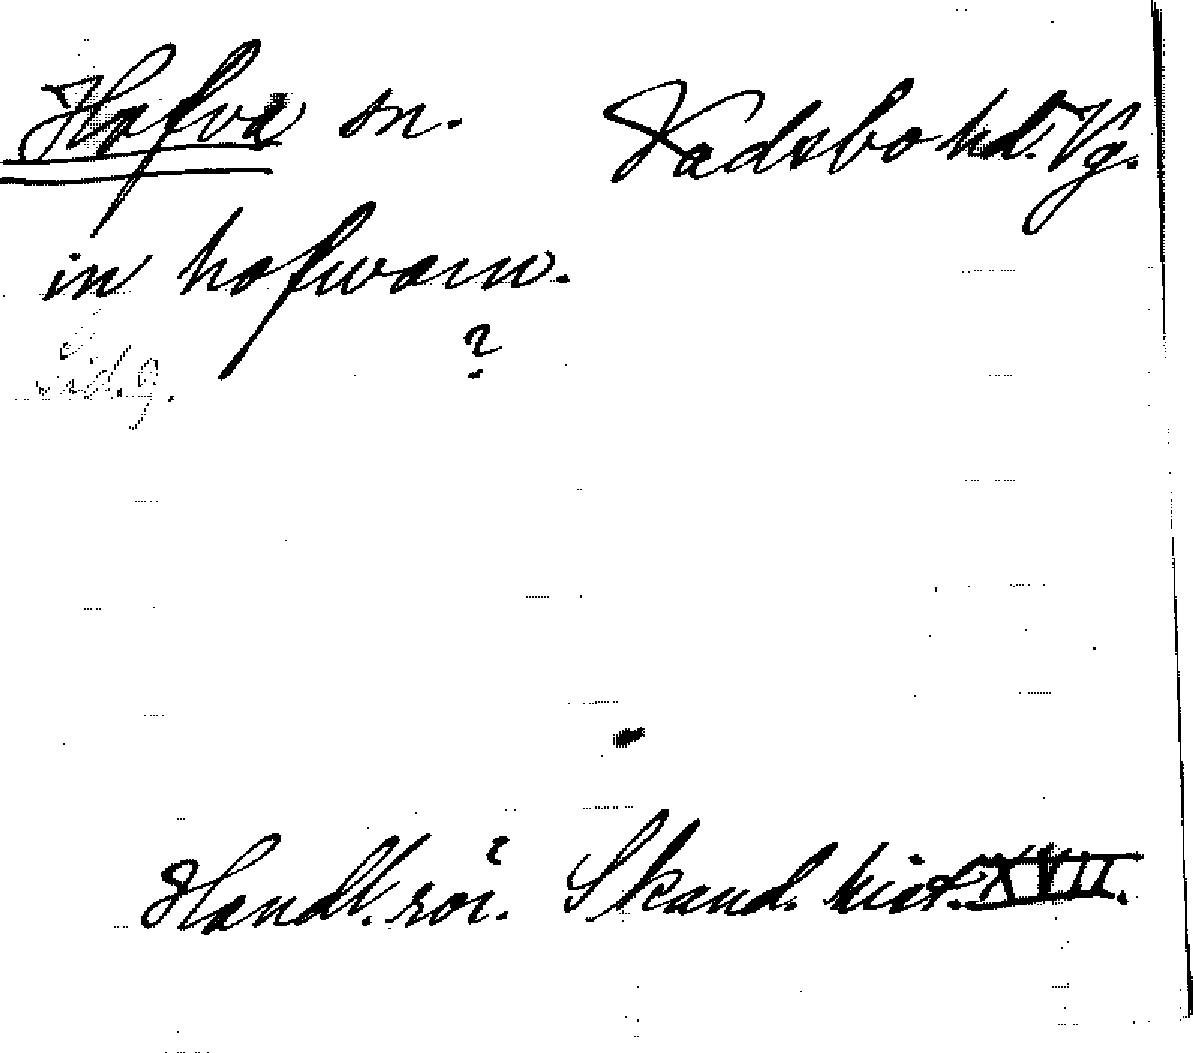 Hofva sn. Vadsbo hd. Vg.
in hofwom.
?
Sid. 9.
Handl. rör. Skand. hist. XVII.